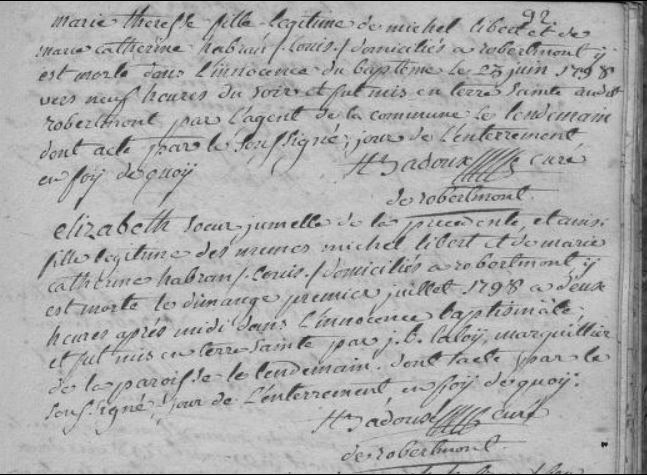 92
marie theresse fille legitime de michel libert et de
marie catherine habran /. Louis ./ domiciliés a robertmont y
est morte dans l'innocence du baptême le 23 juin 1798
vers neuf heures du soir et fut mis en terre Sainte audit
robertmont par l'agent de la commune le lendemain
dont acte par le soussigné, jour de l'enterrement
en foij de quoij
curé
de robertmont.
elizabeth soeur jumelle de la precedente, et aussi
fille legitime des mêmes michel libert et de marie
catherine habran /. Louis ./ domiciliés a robertmont y
est morte le dimange premier juillet 1798 a deux
heures après midi dans l'innocence baptismâle,
et fut mis en terre Sainte par j. b. laloij, marguillier
de la paroisse le lendemain. dont acte par le
soussigné, jour de l'enterrement, en foij de quoij.
curé
de robertmont